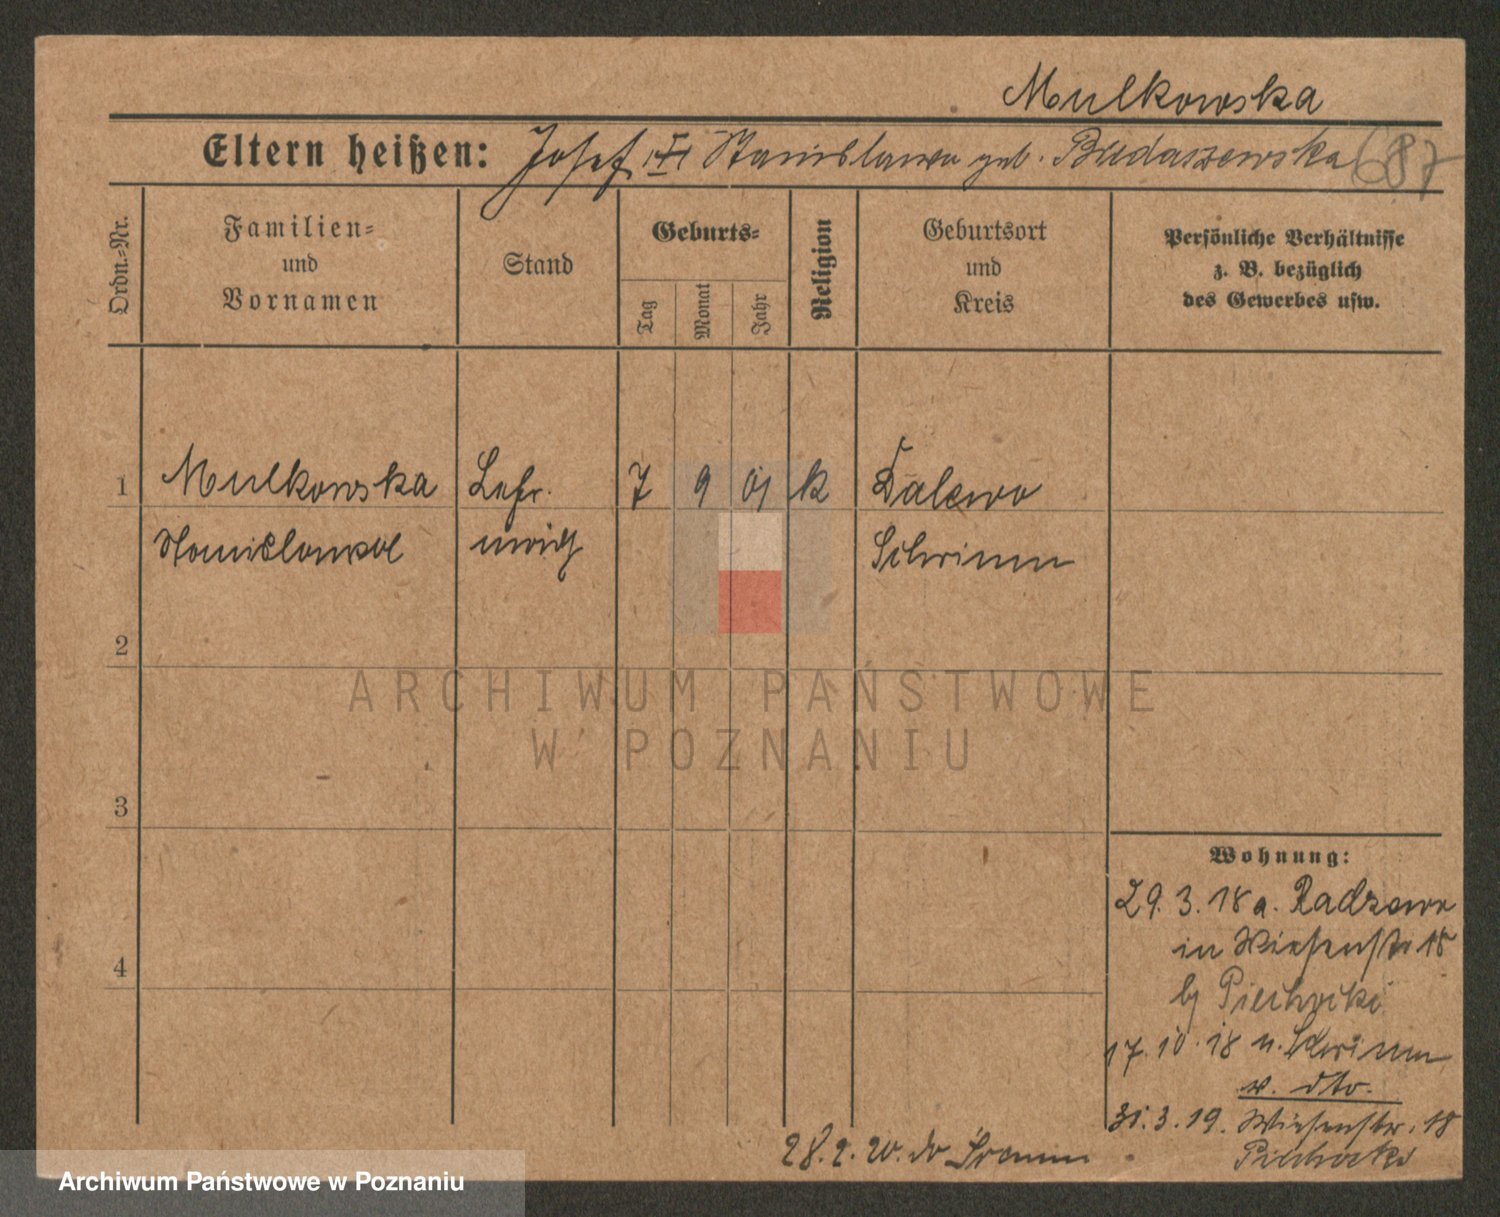 Mulkowska
Eltern heißen: Josef Stanislawa geb. Budaszewska 687
Ordn.-Nr.
Familien-
und
Vornamen
Stand
Geburts-
Tag
Monat
Jahr
Religion
Geburtsort
und
Kreis
Persönliche Verhältnisse
z. B. bezüglich
des Gewerbes usw.
1 Mulkowska Lehr. 7 9 01 k Dalewo
Stanislawa Schrimm
2
3
4
Wohnung:
29. 3. 18 a. Radzewo
in Wiesenstr 18
b/ Piechocki
17. 10. 18 n. Schrimm
v. dto.
31. 3. 19. Wiesenstr. 18
Piechocki
28. 2. 20. do Śremu
ARCHIWUM PAŃSTWOWE
W POZNANIU
Archiwum Państwowe w Poznaniu